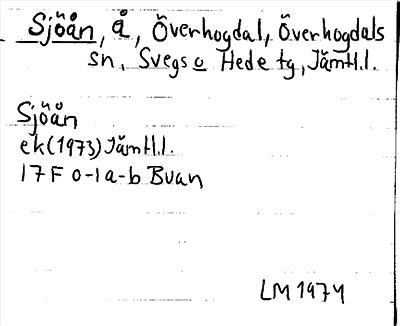 Sjöån, å, Överhogdal, Överhogdals
sn, Svegs o Hede tg, Jämtl.l.
Sjöån
ek(1973) Jämtl.l.
17F 0-1a-b Buan
LM 1974